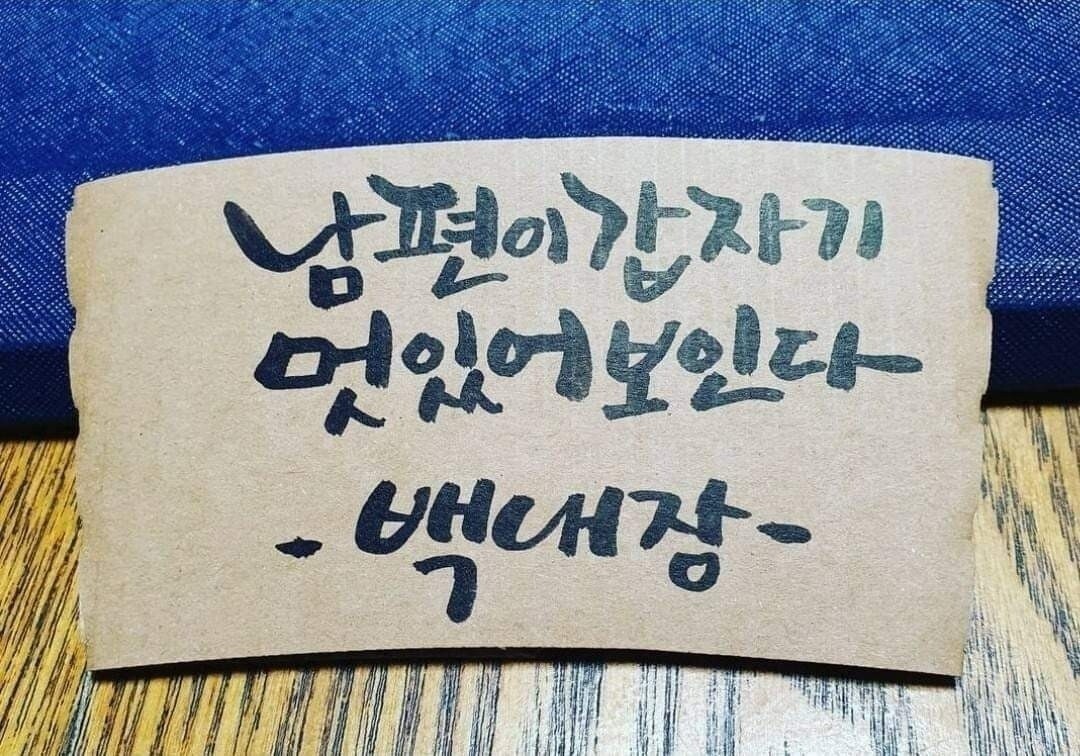 남편이갑자기
멋있어보인다
- 백대장 -